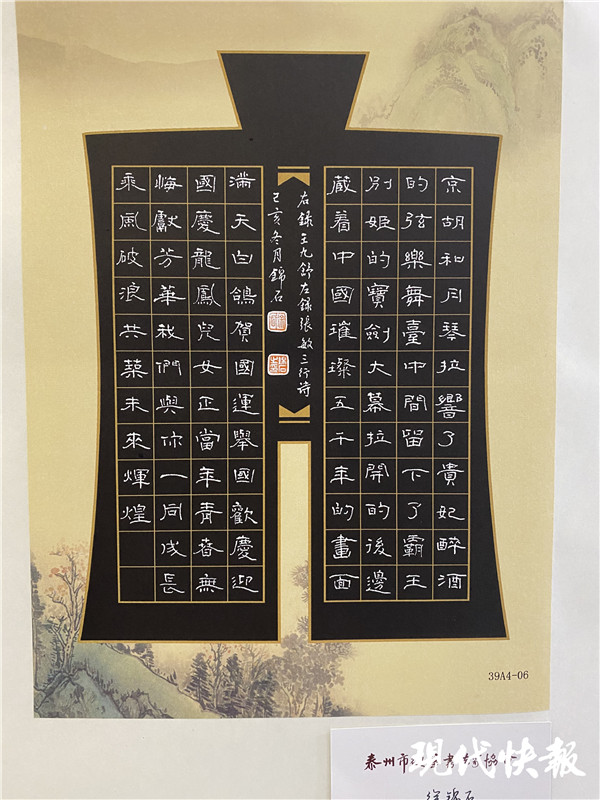 京胡和月琴拉響了貴妃醉酒
的弦樂舞臺中間留下了霸王
別姬的寶劍大幕拉開的後邊
藏着中國璀璨五千年的畫面
右錄王九舒左錄張敏三行诗
己亥冬月錦石
滿天白鴿賀國運舉國歡慶迎
國慶龍鳳兒女正當年青春無
悔獻芳華我們與你一同成長
乘風破浪共築未來輝煌
39A4-06
泰州市
現代快報